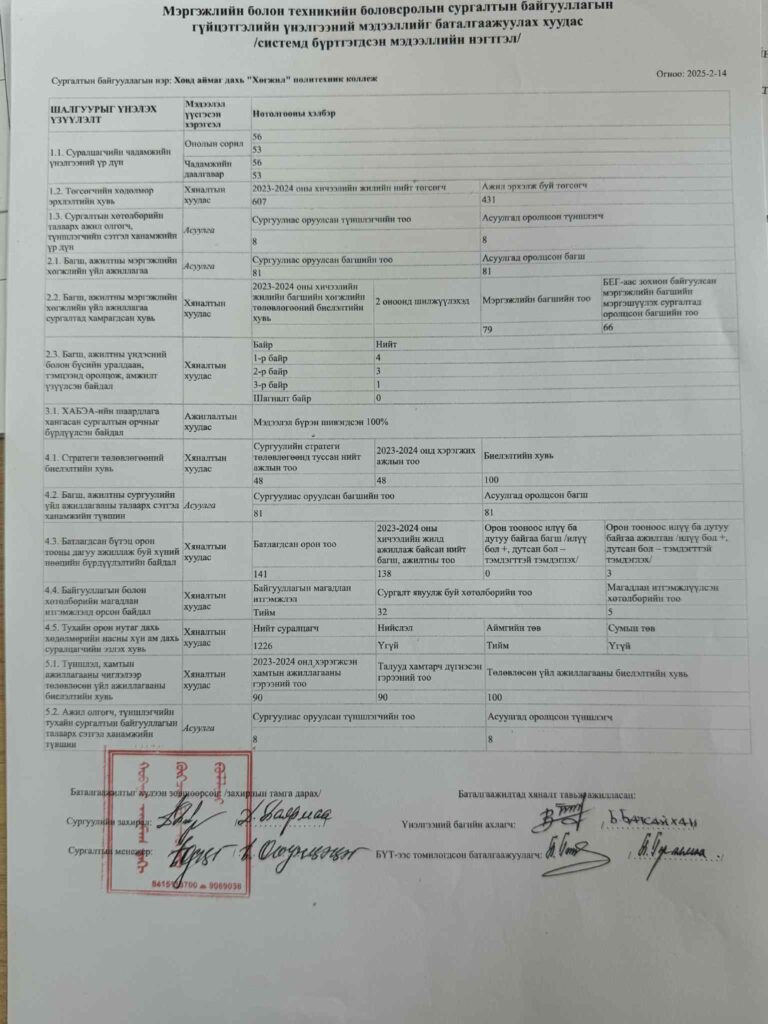 Мэргэжлийн болон техникийн боловсролын сургалтын байгууллагын
гүйцэтгэлийн үнэлгээний мэдээллийг баталгаажуулах хуудас
/системд бүртгэгдсэн мэдээллийн нэгтгэл/
Сургалтын байгууллагын нэр: Ховд аймаг дахь "Хөгжил" политехник коллеж
Огноо: 2025-2-14
ШАЛГУУРЫГ ҮНЭЛЭХ ҮЗҮҮЛЭЛТ
Мэдээлэл үүсгэсэн хэрэгсэл
Нотолгооны хэлбэр
1.1. Суралцагчийн чадамжийн үнэлгээний үр дүн
Онолын сорил
56
53
Чадамжийн даалгавар
56
53
1.2. Төгсөгчийн хөдөлмөр эрхлэлтийн хувь
Хяналтын хуудас
2023-2024 оны хичээлийн жилийн нийт төгсөгч
Ажил эрхэлж буй төгсөгч
607
431
1.3. Сургалтын хөтөлбөрийн талаарх ажил олгогч, түншлэгчийн сэтгэл ханамжийн үр дүн
Асуулга
Сургуулиас оруулсан түншлэгчийн тоо
Асуулгад оролцсон түншлэгч
8
8
2.1. Багш, ажилтны мэргэжлийн хөгжлийн үйл ажиллагаа
Асуулга
Сургуулиас оруулсан багшийн тоо
Асуулгад оролцсон багш
81
81
2.2. Багш, ажилтны мэргэжлийн хөгжлийн үйл ажиллагаа сургалтад хамрагдсан хувь
Хяналтын хуудас
2023-2024 оны хичээлийн жилийн багшийн хөгжлийн төлөвлөгөөний биелэлтийн хувь
2 оноонд шилжүүлэхэд
Мэргэжлийн багшийн тоо
БЕГ-аас зохион байгуулсан мэргэжлийн багшийн мэргэшүүлэх сургалтад оролцсон багшийн тоо
79
66
2.3. Багш, ажилтны үндэсний болон бүсийн уралдаан, тэмцээнд оролцож, амжилт үзүүлсэн байдал
Хяналтын хуудас
Байр
Нийт
1-р байр
4
2-р байр
3
3-р байр
1
Шагналт байр
0
3.1. ХАБЭА-ийн шаардлага хангасан сургалтын орчныг бүрдүүлсэн байдал
Ажиглалтын хуудас
Мэдээлэл бүрэн шивэгдсэн 100%
4.1. Стратеги төлөвлөгөөний биелэлтийн хувь
Хяналтын хуудас
Сургуулийн стратеги төлөвлөгөөнд туссан нийт ажлын тоо
2023-2024 онд хэрэгжих ажлын тоо
Биелэлтийн хувь
48
48
100
4.2. Багш, ажилтны сургуулийн үйл ажиллагааны талаарх сэтгэл ханамжийн түвшин
Асуулга
Сургуулиас оруулсан багшийн тоо
Асуулгад оролцсон багш
81
81
4.3. Батлагдсан бүтэц орон тооны дагуу ажиллаж буй хүний нөөцийн бүрдүүлэлтийн байдал
Хяналтын хуудас
Батлагдсан орон тоо
2023-2024 оны хичээлийн жилд ажиллаж байсан нийт багш, ажилтны тоо
Орон тооноос илүү ба дутуу байгаа багш /илүү бол +, дутсан бол – тэмдэгтэй тэмдэглэх/
Орон тооноос илүү ба дутуу байгаа ажилтан /илүү бол +, дутсан бол – тэмдэгтэй тэмдэглэх/
141
138
0
3
4.4. Байгууллагын болон хөтөлбөрийн магадлан итгэмжлэлд орсон байдал
Хяналтын хуудас
Байгууллагын магадлан итгэмжлэл
Сургалт явуулж буй хөтөлбөрийн тоо
Магадлан итгэмжлүүлсэн хөтөлбөрийн тоо
Тийм
32
5
4.5. Тухайн орон нутаг дахь хөдөлмөрийн насны хүн ам дахь суралцагчийн эзлэх хувь
Хяналтын хуудас
Нийт суралцагч
Нийслэл
Аймгийн төв
Сумын төв
1226
Үгүй
Тийм
Үгүй
5.1. Түншлэл, хамтын ажиллагааны чиглэлээр төлөвлөсөн үйл ажиллагааны биелэлтийн хувь
Хяналтын хуудас
2023-2024 онд хэрэгжсэн хамтын ажиллагааны гэрээний тоо
Талууд хамтарч дүгнэсэн гэрээний тоо
Төлөвлөсөн үйл ажиллагааны биелэлтийн хувь
90
90
100
5.2. Ажил олгогч, түншлэгчийн тухайн сургалтын байгууллагын талаарх сэтгэл ханамжийн түвшин
Асуулга
Сургуулиас оруулсан түншлэгчийн тоо
Асуулгад оролцсон түншлэгч
8
8
Баталгаажилтыг хүлээн зөвшөөрсөн: /захирлын тамга дарах/
Баталгаажилтад хяналт тавьж ажилласан:
Сургуулийн захирал:
Үнэлгээний багийн ахлагч:
Сургалтын менежер:
БҮТ-ээс томилогдсон баталгаажуулагч:
9069038